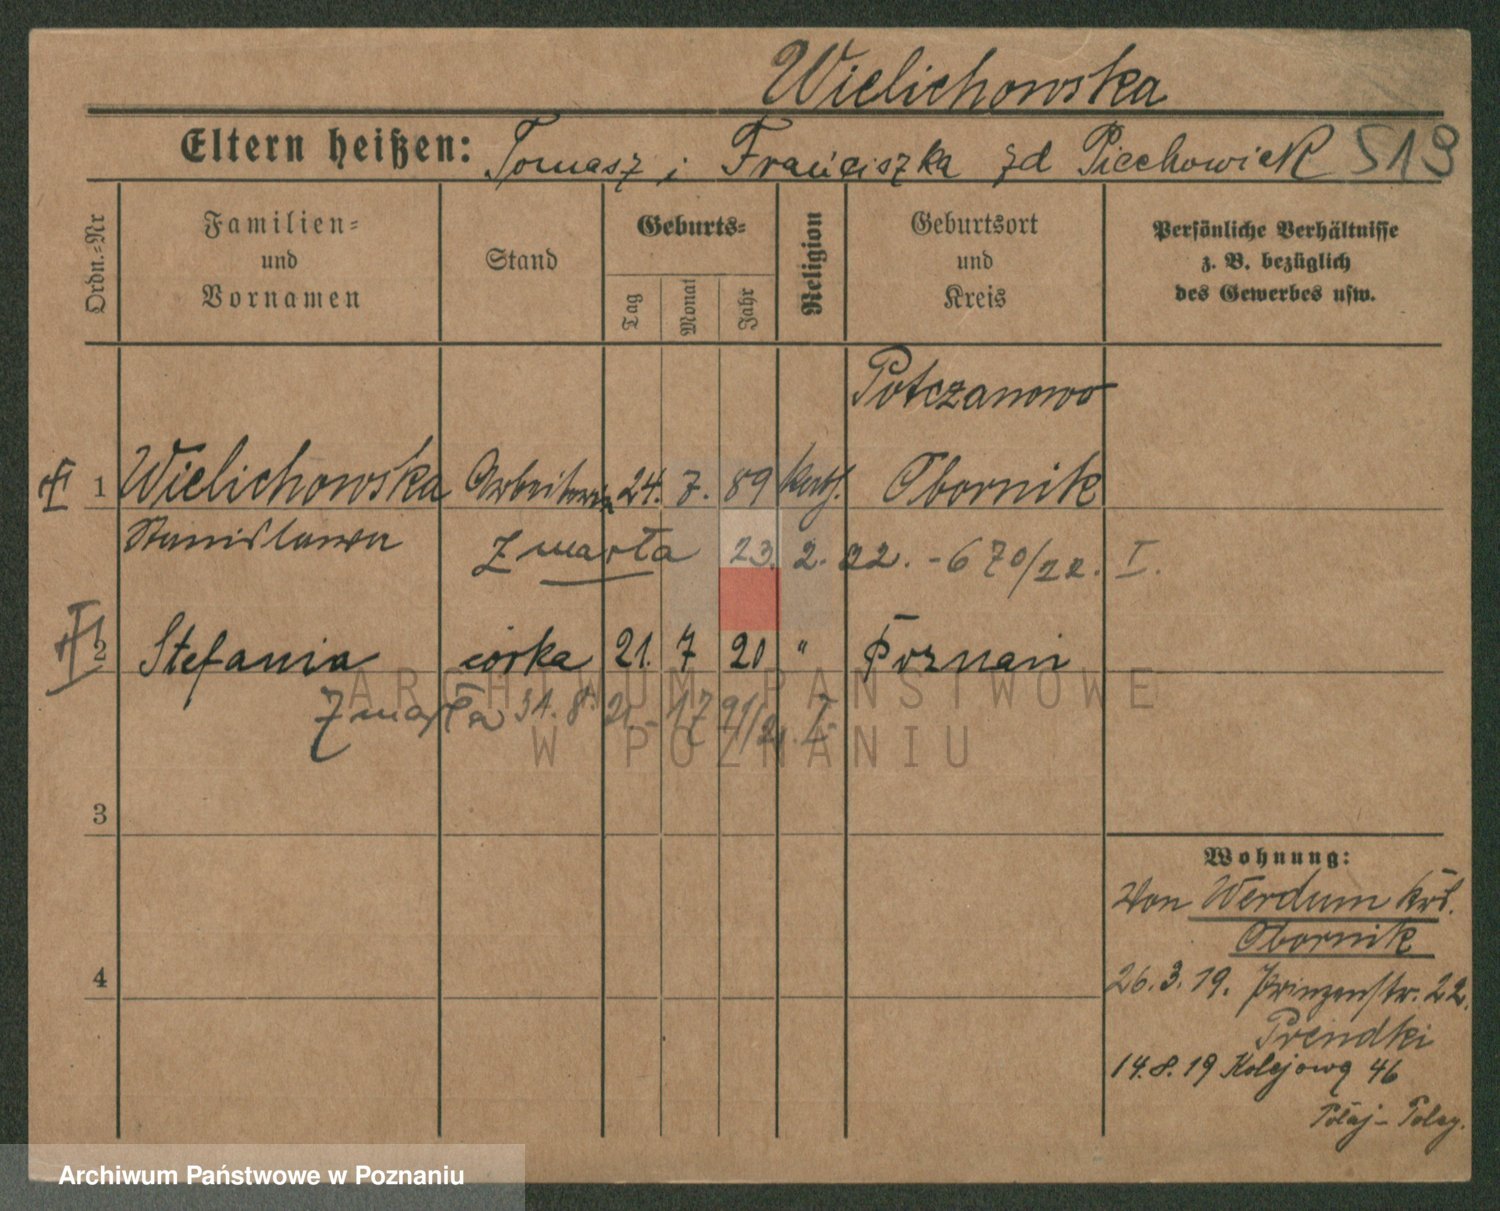 Wielichowska
Eltern heißen: Tomasz i Franciszka zd Piechowiak 519
Ordn.=Nr
Familien=
und
Vornamen
Stand
Geburts=
Tag
Monat
Jahr
Religion
Geburtsort
und
Kreis
Persönliche Verhältnisse
z. B. bezüglich
des Gewerbes usw.
Potczanowo
1 Wielichowska Arbeiterin 24. 7. 89 kath. Obornik
Stanislawa Zmarła 23. 2. 22. - 670/22. I.
2 Stefania córka 21. 7 20 " Poznań
Zmarła 31. 8. 21. - 1791/21. I.
3
4
Wohnung:
Von Werdum Krs.
Obornik
26. 3. 19. Prinzenstr. 22.
Prendki
14. 8. 19 Kolejowa 46
ARCHIWUM PAŃSTWOWE
W POZNANIU
Archiwum Państwowe w Poznaniu